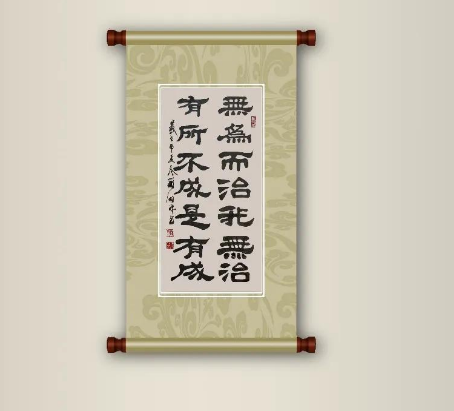 無為而治非無治
有所不成是有成